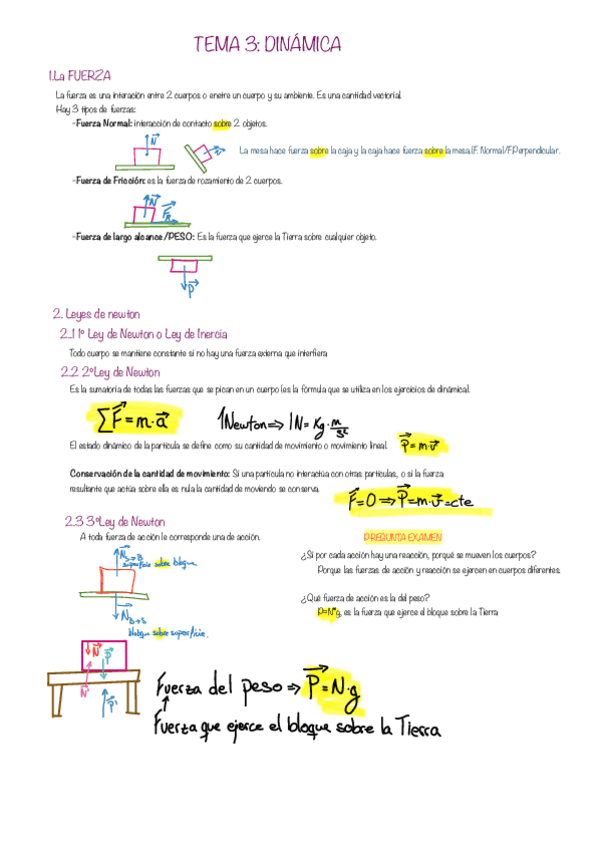 TEMA 3: DINÁMICA
1.La FUERZA
La fuerza es una interación entre 2 cuerpos o enetre un cuerpo y su ambiente. Es una cantidad vectorial.
Hay 3 tipos de fuerzas:
-Fuerza Normal: interacción de contacto sobre 2 objetos.
N
La mesa hace fuerza sobre la caja y la caja hace fuerza sobre la mesa.(F. Normal/F.Perpendicular.
-Fuerza de Fricción: es la fuerza de rozamiento de 2 cuerpos.
N
F_R
-Fuerza de largo alcance/PESO: Es la fuerza que ejerce la Tierra sobre cualquier objeto.
P
2. Leyes de newton
2.1 1º Ley de Newton o Ley de Inercia
Todo cuerpo se mantiene constante si no hay una fuerza externa que interfiera
2.2 2ºLey de Newton
Es la sumatoria de todas las fuerzas que se pican en un cuerpo (es la fórmula que se utiliza en los ejercicios de dinámica).
ΣF = m·a 1Newton => 1N = Kg·m/s²
El estado dinámico de la partícula se define como su cantidad de movimiento o movimiento lineal. P = m·v
Conservación de la cantidad de movimiento: Si una partícula no interactúa con otras partículas, o si la fuerza
resultante que actúa sobre ella es nula la cantidad de moviendo se conserva.
F = 0 => P = m·v = cte
2.3 3ºLey de Newton
A toda fuerza de acción le corresponde una de acción.
N S→B
superficie sobre bloque
N B→S
bloque sobre superficie.
PREGUNTA EXAMEN
¿Si por cada acción hay una reacción, porqué se mueven los cuerpos?
Porque las fuerzas de acción y reacción se ejercen en cuerpos diferentes.
¿Qué fuerza de acción es la del peso?
P=N*g, es la fuerza que ejerce el bloque sobre la Tierra
N P
N'
P'
Fuerza del peso => P = N·g
Fuerza que ejerce el bloque sobre la Tierra